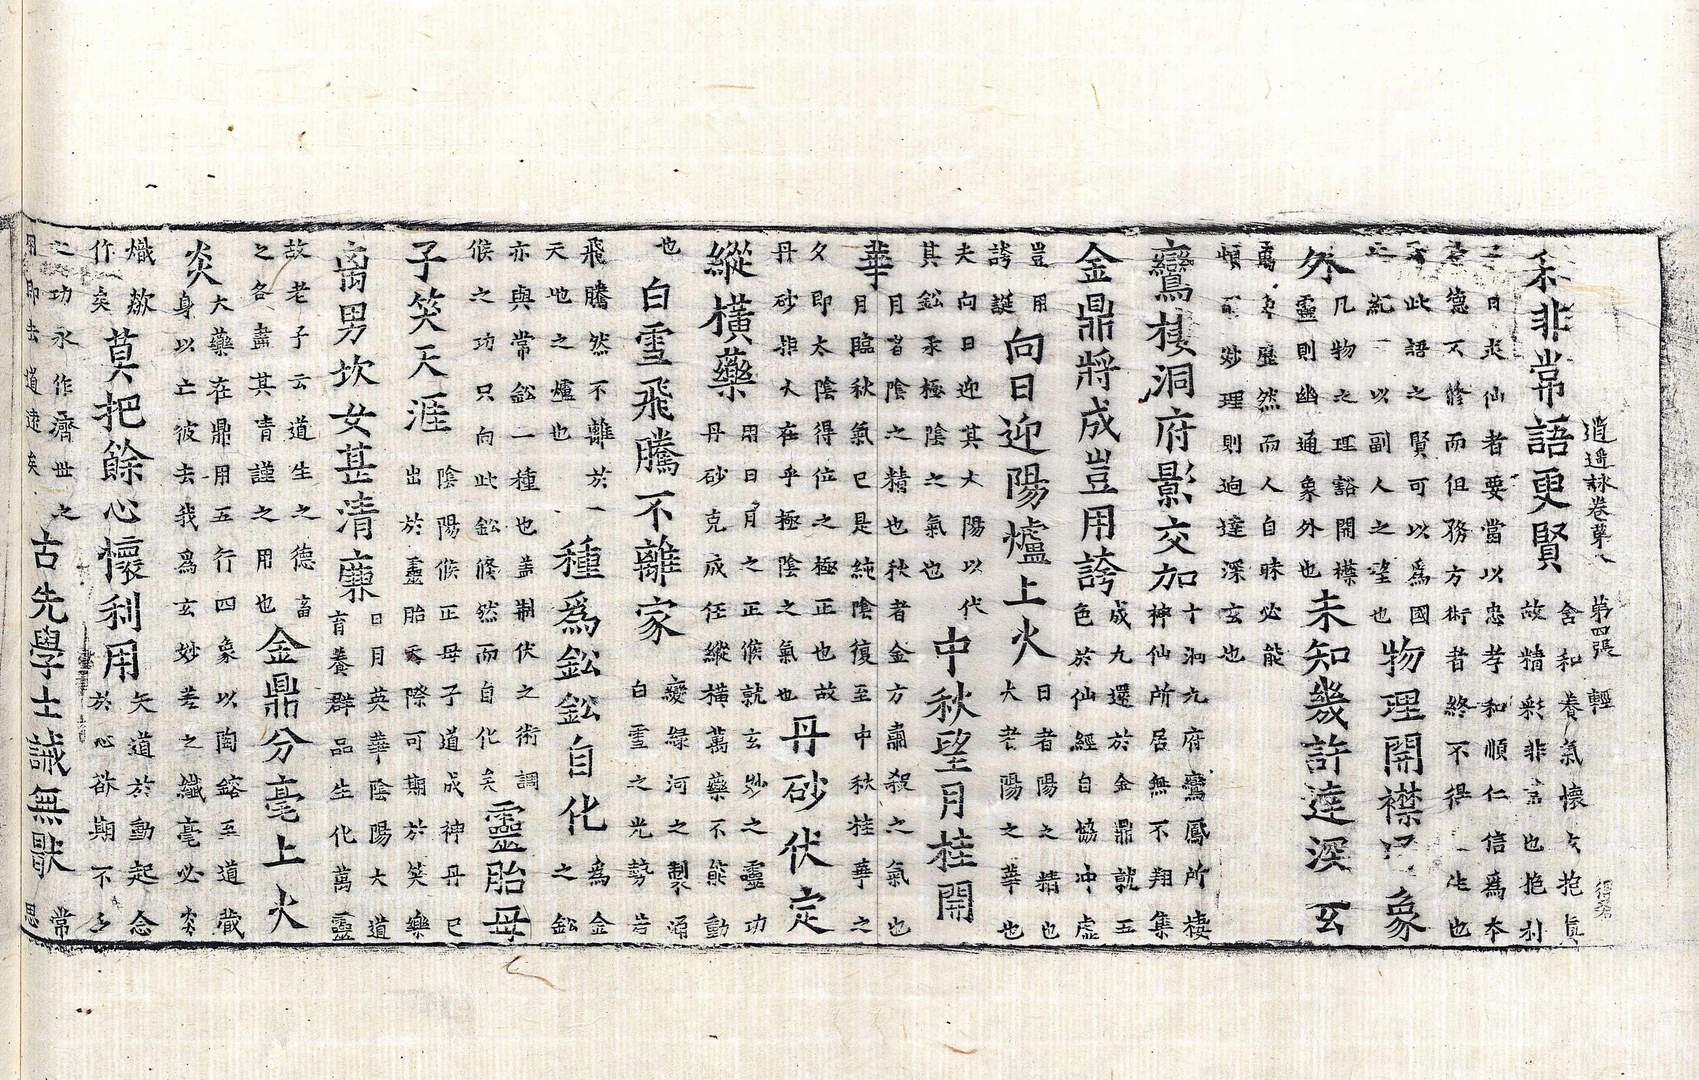 逍遥詠卷第八　第四張　輕
非常語更賢
含和養氣懷文抱眞
故精彩非言也抱利
曰求仙者要當以忠孝和順仁信爲本
德不修而但務方術者終不得生也
此語之賢可以爲國
紀以副人之望也
物理開襟象
外
凡物之理豁開襟
靈則幽通象外也
未知幾許達深玄
萬歷然而人自昧必能
頓妙理則迥達深玄也
鸞棲洞府影交加
十洞九府鸞鳳所棲
神仙所居無不翔集
金鼎將成豈用誇
成九還於金鼎就五
色於仙經自協沖虛
豈用
誇誕
向日迎陽爐上火
日者陽之精也
大老陽之華也
夫向日迎其太陽以代
其鈆汞極陰之氣也
中秋望月桂開
華
月者陰之精也秋者金方肅殺之氣也
月臨秋氣已是純陰復至中秋桂華之
夕即太陰得位之極正也故
丹砂指人在乎極陰之氣也
丹砂伏定
縱橫藥
用日月之正候就玄妙之靈功
丹砂克成任縱橫萬藥不能動
也
白雪飛騰不離家
變綠河之製酒
白雪之光勢若
飛騰然不離於一
天地之爐也
種爲鈆鈆自化
爲金
之鈆
亦與常鈆一種也蓋制伏之術調
候之功只向此鈆倏然而自化矣
靈胎母
子笑天涯
陰陽候正母子道成神丹已
出於靈胎天際可期於笑樂
离男坎女甚清廉
日月英華陰陽大道
育養群品生化萬靈
故老子云道生之德畜
之各盡其青謹之用也
金鼎分毫上火
炎
大藥在鼎用五行四象以陶鎔至道藏
身以亡彼去我爲玄妙差之纖毫必炎
熾歘
作矣
莫把餘心懷利用
矢道於動起念
於心欲期不亡
之功永作濟世之
用即去道遠矣
古先學士誡無猒
常
思